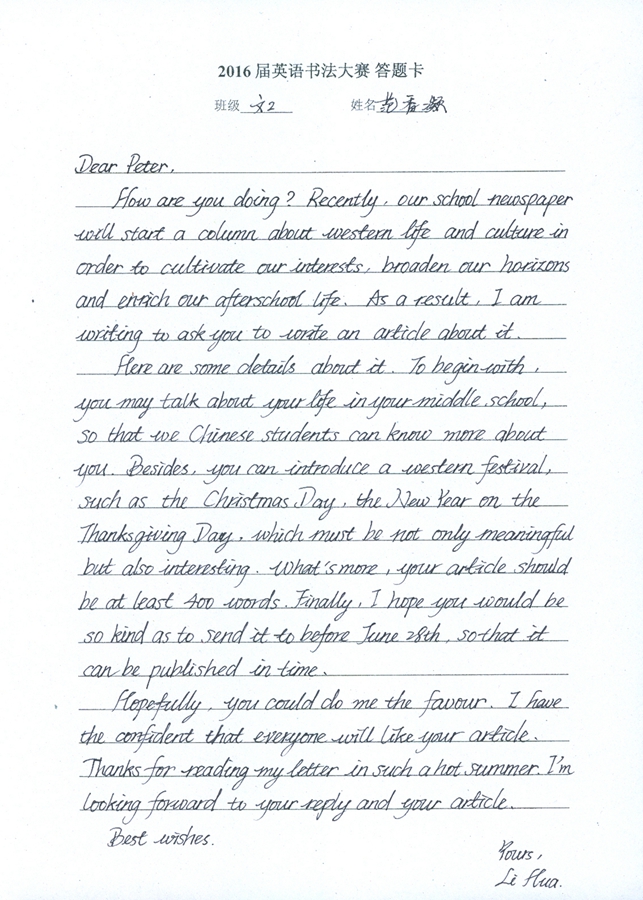 2016 届英语书法大赛 答题卡
班级 文2 姓名 范香凝
Dear Peter,
How are you doing? Recently, our school newspaper
will start a column about western life and culture in
order to cultivate our interests, broaden our horizons
and enrich our afterschool life. As a result, I am
writing to ask you to write an article about it.
Here are some details about it. To begin with,
you may talk about your life in your middle school,
so that we Chinese students can know more about
you. Besides, you can introduce a western festival,
such as the Christmas Day, the New Year on the
Thanksgiving Day, which must be not only meaningful
but also interesting. What's more, your article should
be at least 400 words. Finally, I hope you would be
so kind as to send it to before June 28th, so that it
can be published in time.
Hopefully, you could do me the favour. I have
the confident that everyone will like your article.
Thanks for reading my letter in such a hot summer. I'm
looking forward to your reply and your article.
Best wishes.
Yours,
Li Hua.